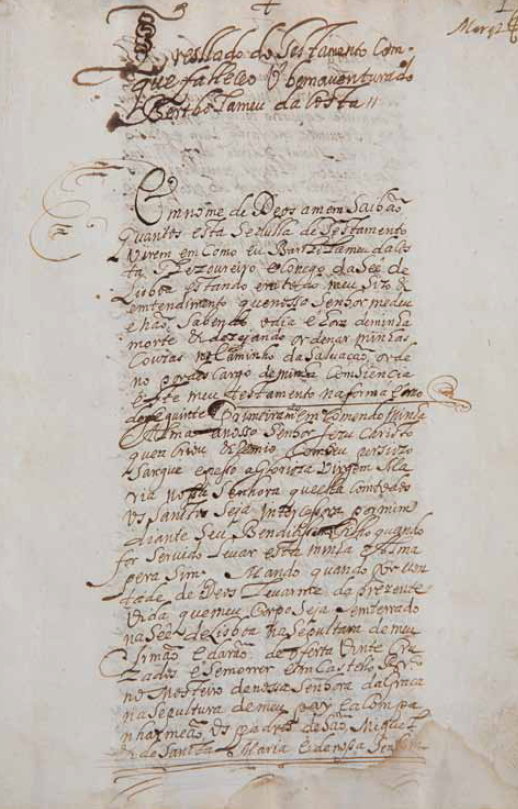 Tresllado do Testamento Com
que falleceo O bemaventurado
Bertholameu da Costa
Em nome de Deos amem Saibão
quantos esta Sedulla de Testamento
Virem em Como Eu Bartolameu da Cos
ta Thezoureiro e Conigo da See de
Lisboa Estando em todo meu Sizo &
emtendimento que nosso Senhor me deu
e não Sabendo o dia e ora de minha
morte & dezejando ordenar minhas
Couzas no Caminho da Salvação, orde
no por des Cargo de minha Comsiencia
este meu testamento na forma e modo
Seguinte Primeiramte em Comendo minha
Alma a nosso Senhor Jezu Christo
que a Criou & Remio Com seu persiozo
Sangue e peso a Glorioza Virgem Ma
ria nossa Senhora que ella Com todos
os Sanctos Seja Intersesora por mim
diante Seu Benditissimo Filho quando
for Servido Levar esta minha Alma
pera Sim. Mando quando for von
tade de Deos Levarme da prezente
Vida que meu Corpo Seja emterrado
na See de Lisboa na Sepultura de meu
Irmão e darão de oferta Vinte Cru
zados e Se morrer em Castello Brco
no Mosteiro de nossa Senhora da Graca
na Sepultura de meu pay e a Com pa
nharmeão os padres de São Miguel
& de Sancta Maria e de nossa Senhora